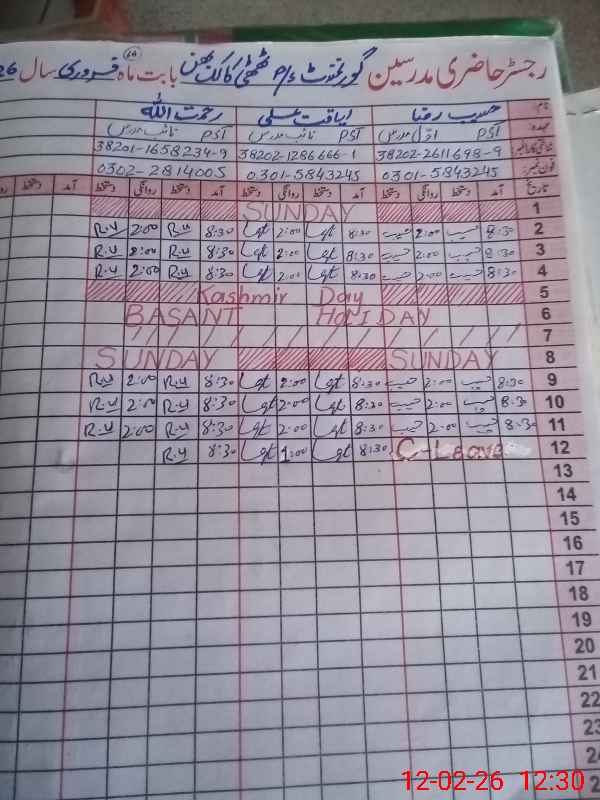 رجسٹر حاضری مدرسین گورنمنٹ پ/س ٹھٹی کالک بھن بابت ماہ فروری سال 26
نام: حسیب رضا لیاقت علی رحمت اللہ
عہدہ: PST اوّل مدرس PST نائب مدرس PST نائب مدرس
شناختی کارڈ نمبر 38202-2611698-9 38202-1286666-1 38201-1658234-9
فون نمبر: 0301-5843245 0301-5843245 0302-2814005
تاریخ آمد دستخط روانگی دستخط آمد دستخط روانگی دستخط آمد دستخط روانگی دستخط آمد دستخط
1 SUNDAY
2 8:30 حسیب 2:00 حسیب 8:30 2:00 8:30 R.U 2:00 R.U
3 8:30 حسیب 2:00 حسیب 8:30 2:00 8:30 R.U 2:00 R.U
4 8:30 حسیب 2:00 حسیب 8:30 2:00 8:30 R.U 2:00 R.U
5 Kashmir Day
6 BASANT HOLIDAY
7
8 SUNDAY SUNDAY
9 8:30 حسیب 2:00 حسیب 8:30 2:00 8:30 R.U 2:00 R.U
10 8:30 حسیب 2:00 حسیب 8:30 2:00 8:30 R.U 2:00 R.U
11 8:30 حسیب 2:00 حسیب 8:30 2:00 8:30 R.U 2:00 R.U
12 C-Leave 8:30 1:00 8:30 R.U
13
14
15
16
17
18
19
20
21
22
23
12-02-26 12:30